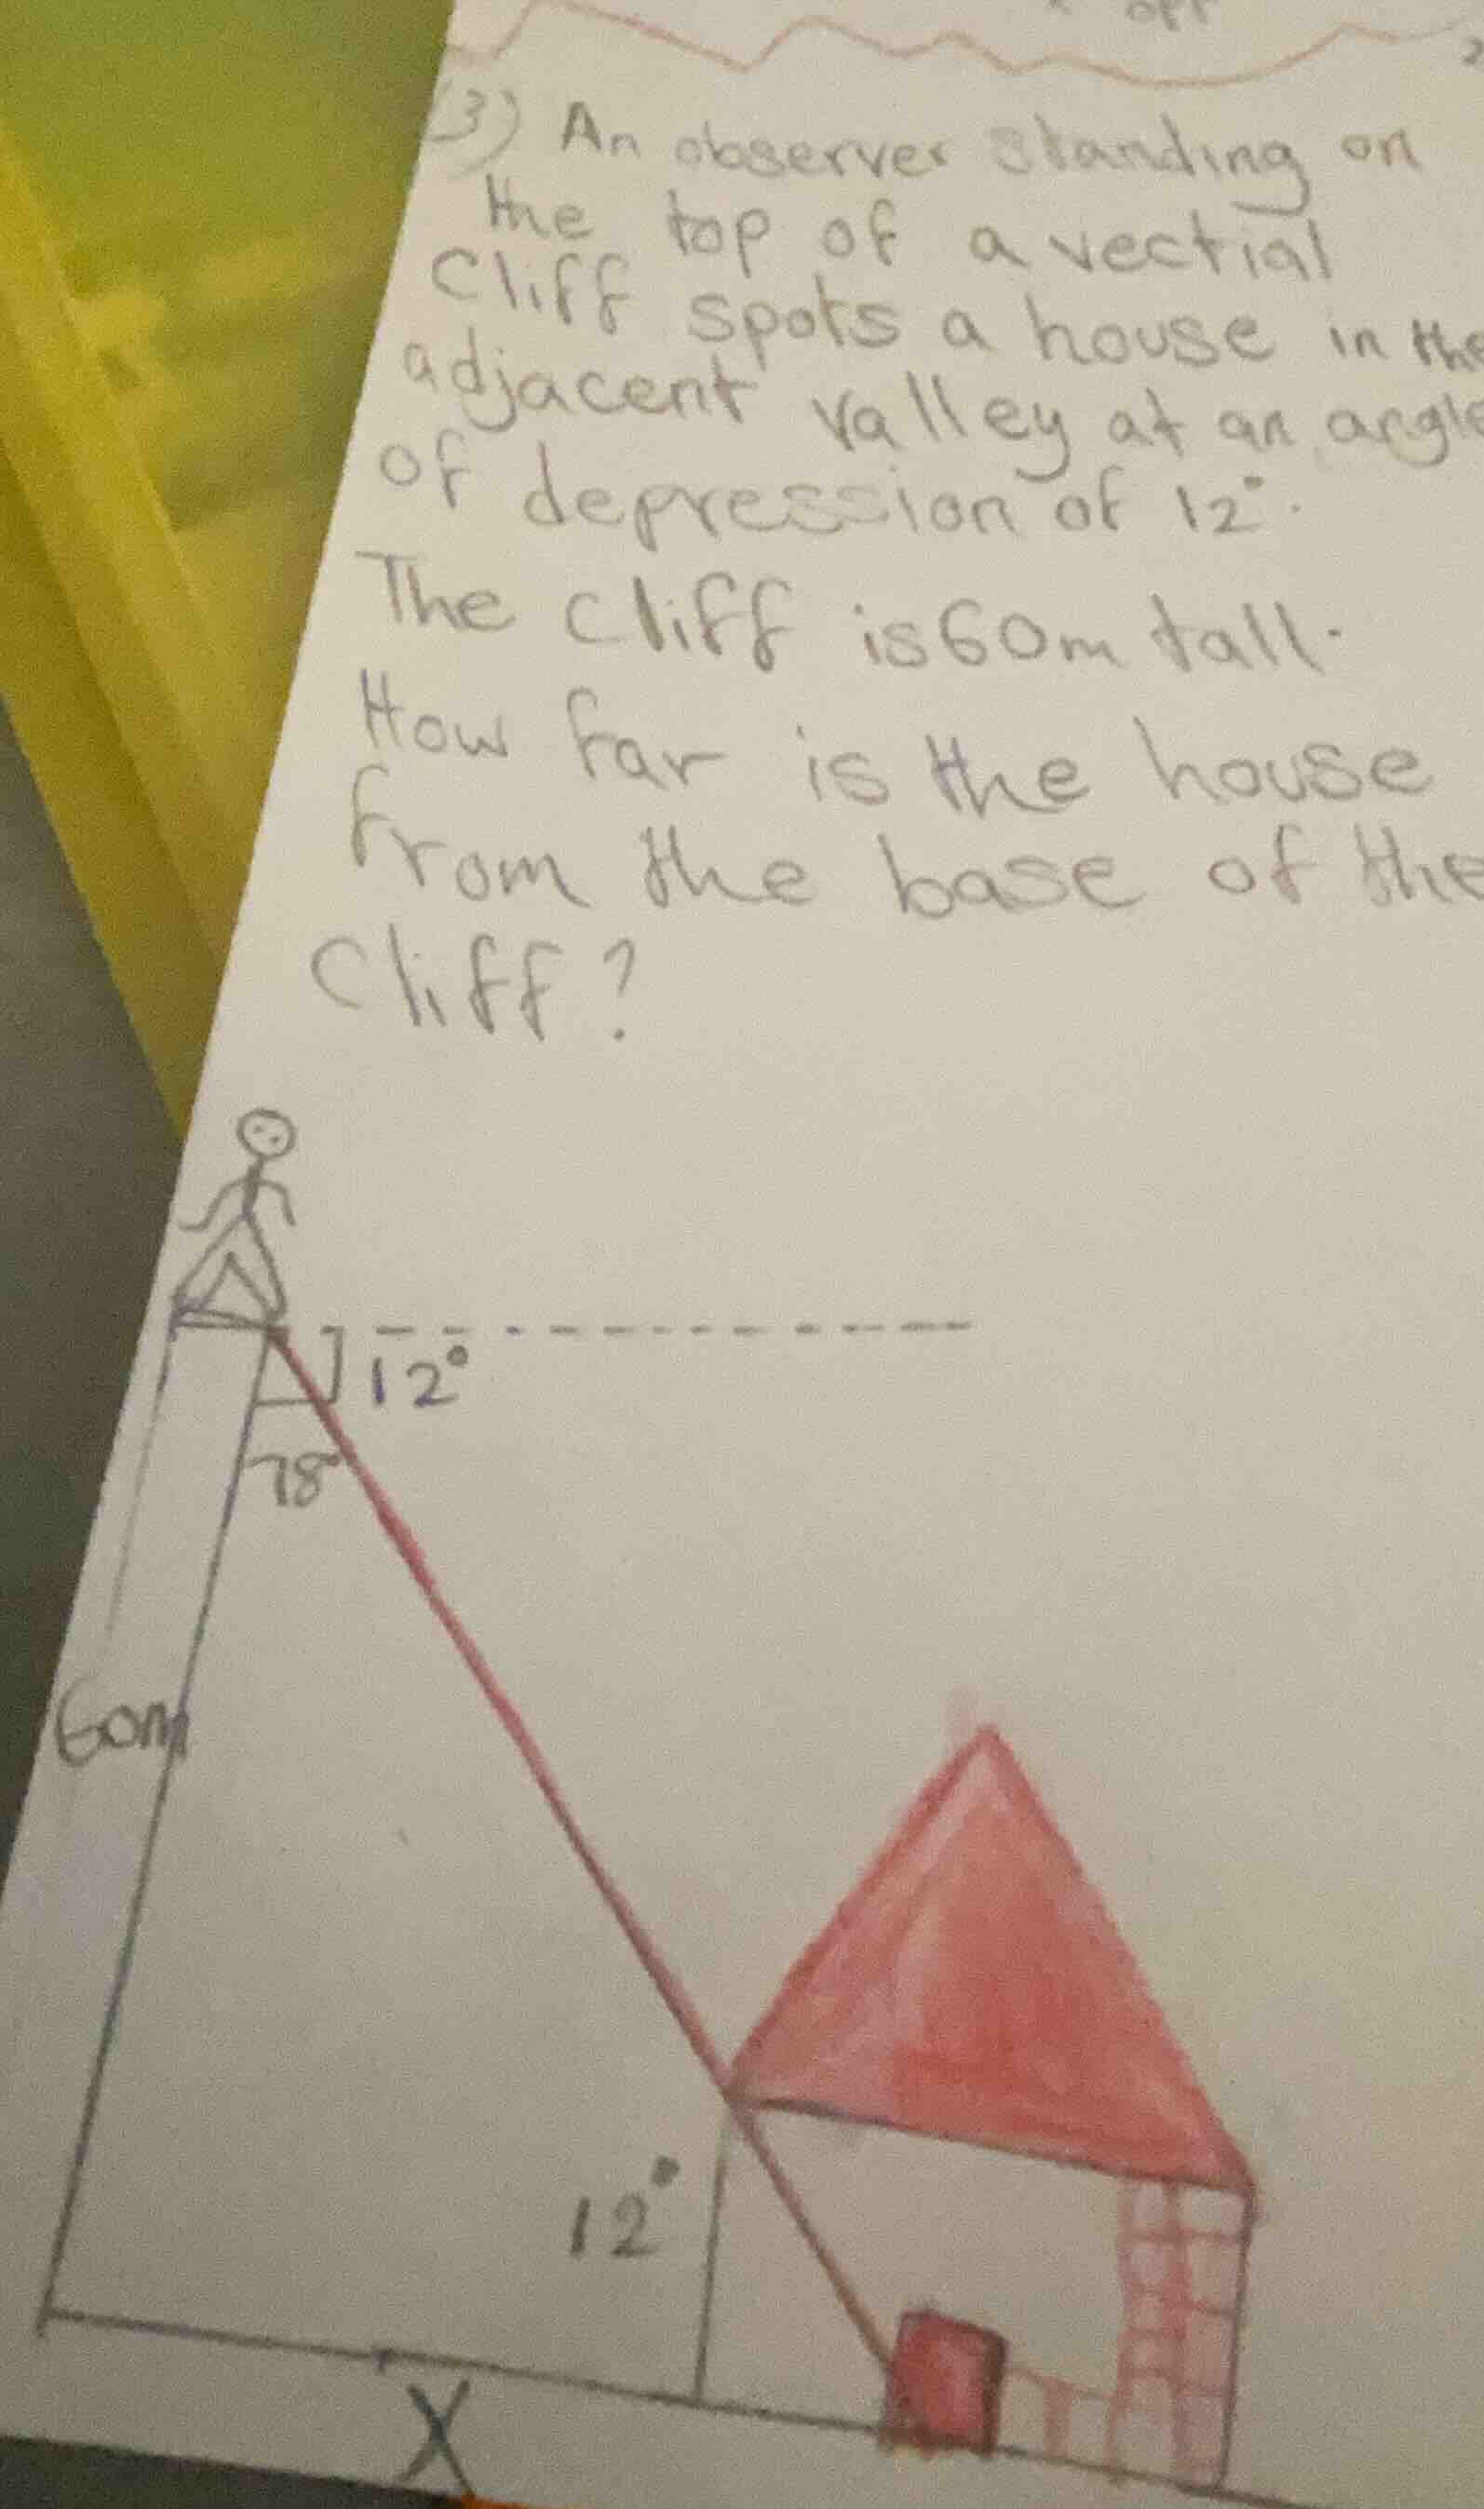 opp
(3) An observer standing on
the top of a vectial
cliff spots a house in the
adjacent valley at an angle
of depression of 12°.
The cliff is 60m tall.
How far is the house
from the base of the
cliff?
12°
78°
60m
12°
X